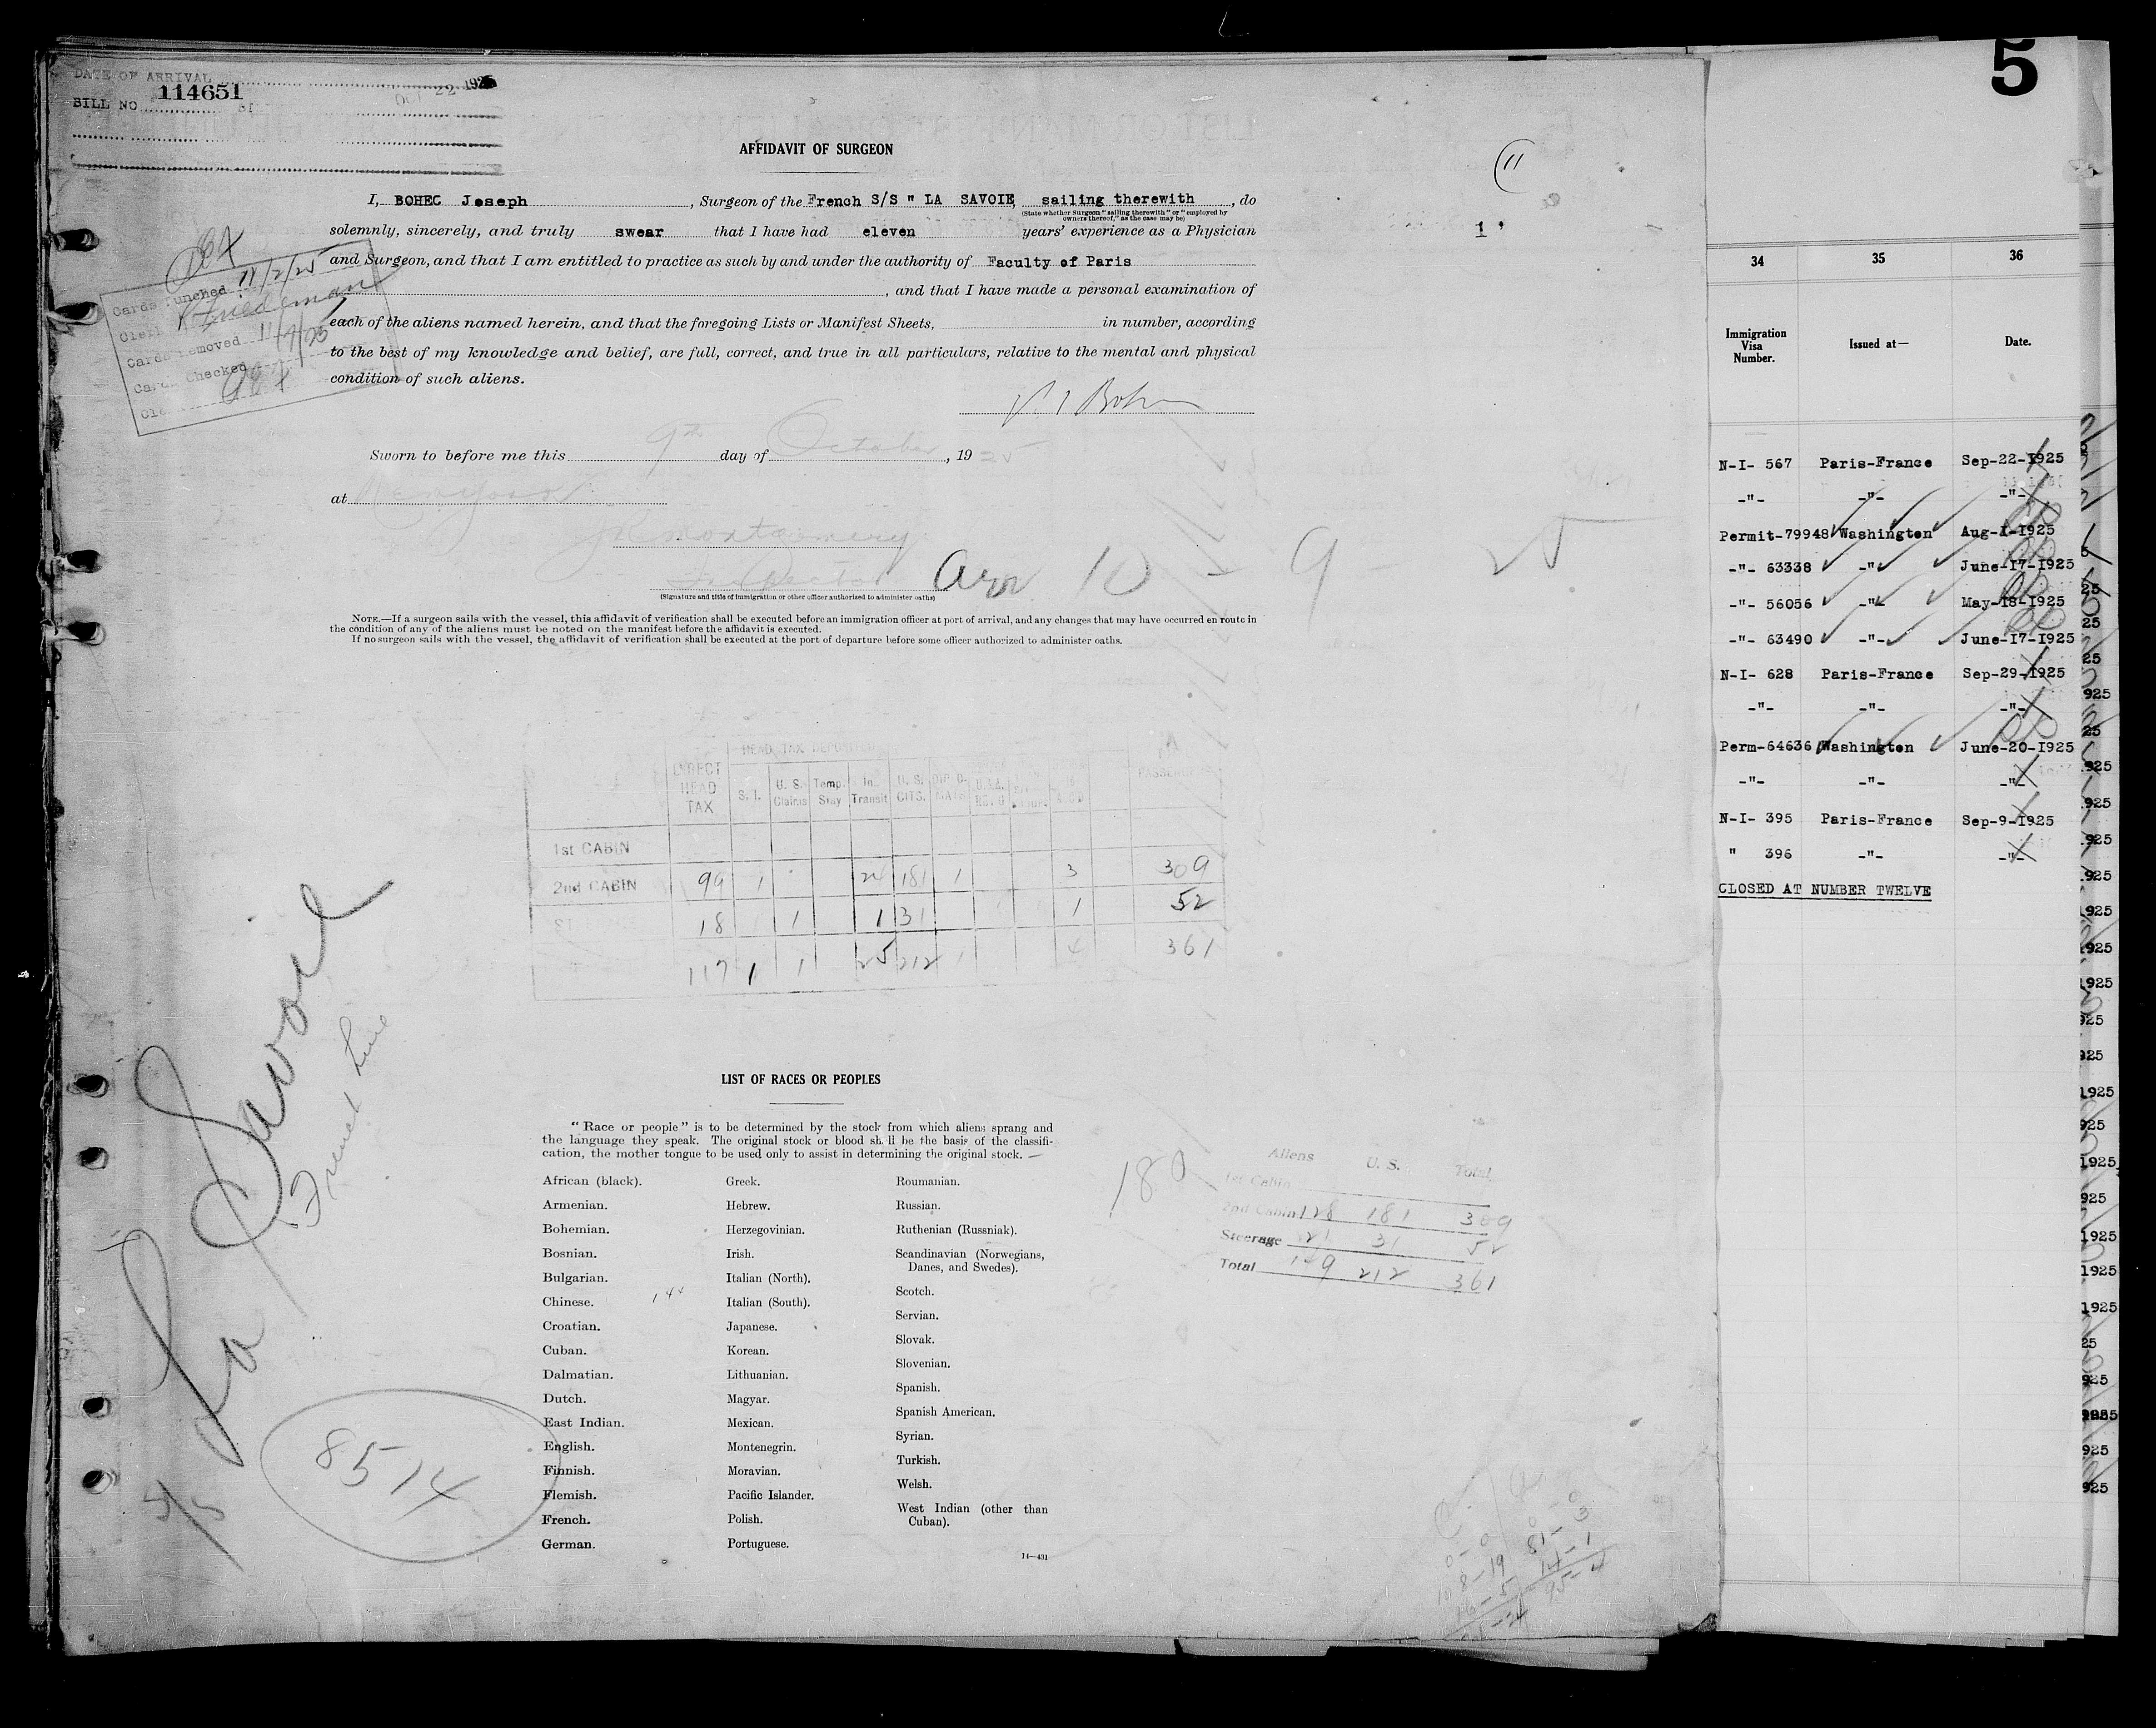 5
DATE OF ARRIVAL
114651
OCT 22 1925
BILL NO
AFFIDAVIT OF SURGEON
11
I, BOHEC Joseph, Surgeon of the French S/S " LA SAVOIE, sailing therewith, do
(State whether Surgeon "sailing therewith" or "employed by
owners thereof," as the case may be)
solemnly, sincerely, and truly swear that I have had eleven years' experience as a Physician
1
and Surgeon, and that I am entitled to practice as such by and under the authority of Faculty of Paris
, and that I have made a personal examination of
each of the aliens named herein, and that the foregoing Lists or Manifest Sheets, in number, according
to the best of my knowledge and belief, are full, correct, and true in all particulars, relative to the mental and physical
condition of such aliens.
Cards Punched 11/2/25
Clerk Friedeman
Cards Removed 11/4/25
Cards Checked
Sworn to before me this 9th day of October, 1925
at New York
Montgomery
Inspector
(Signature and title of immigration or other officer authorized to administer oaths)
Arr 10 - 9 - 25
NOTE.—If a surgeon sails with the vessel, this affidavit of verification shall be executed before an immigration officer at port of arrival, and any changes that may have occurred en route in
the condition of any of the aliens must be noted on the manifest before the affidavit is executed.
If no surgeon sails with the vessel, the affidavit of verification shall be executed at the port of departure before some officer authorized to administer oaths.
HEAD TAX DEPOSITED
DIRECT HEAD TAX S. I. U. S. Claims Temp. Stay In Transit U. S. CITS. PASSENGERS
1st CABIN
2nd CABIN 99 1 24 181 1 3 309
ST 18 1 1 31 1 52
117 1 1 25 212 1 4 361
La Savoie
French Line
8514
LIST OF RACES OR PEOPLES
"Race or people" is to be determined by the stock from which aliens sprang and
the language they speak. The original stock or blood shall be the basis of the classifi-
cation, the mother tongue to be used only to assist in determining the original stock.—
African (black).
Armenian.
Bohemian.
Bosnian.
Bulgarian.
Chinese.
Croatian.
Cuban.
Dalmatian.
Dutch.
East Indian.
English.
Finnish.
Flemish.
French.
German.
Greek.
Hebrew.
Herzegovinian.
Irish.
Italian (North).
Italian (South).
Japanese.
Korean.
Lithuanian.
Magyar.
Mexican.
Montenegrin.
Moravian.
Pacific Islander.
Polish.
Portuguese.
Roumanian.
Russian.
Ruthenian (Russniak).
Scandinavian (Norwegians,
Danes, and Swedes).
Scotch.
Servian.
Slovak.
Slovenian.
Spanish.
Spanish American.
Syrian.
Turkish.
Welsh.
West Indian (other than
Cuban).
14—431
180
Aliens U. S. Total
1st Cabin
2nd Cabin 128 181 309
Steerage 21 31 52
Total 149 212 361
34 35 36
Immigration
Visa
Number.
Issued at—
Date.
N-I- 567 Paris-France Sep-22-1925
-"- -"- -"-
Permit-79948 Washington Aug-1-1925
-"- 63338 -"- June-17-1925
-"- 56056 -"- May-18-1925
-"- 63490 -"- June-17-1925
N-I- 628 Paris-France Sep-29-1925
-"- -"- -"-
Perm-64636 Washington June-20-1925
-"- -"- -"-
N-I- 395 Paris-France Sep-9-1925
" 396 -"- -"-
CLOSED AT NUMBER TWELVE